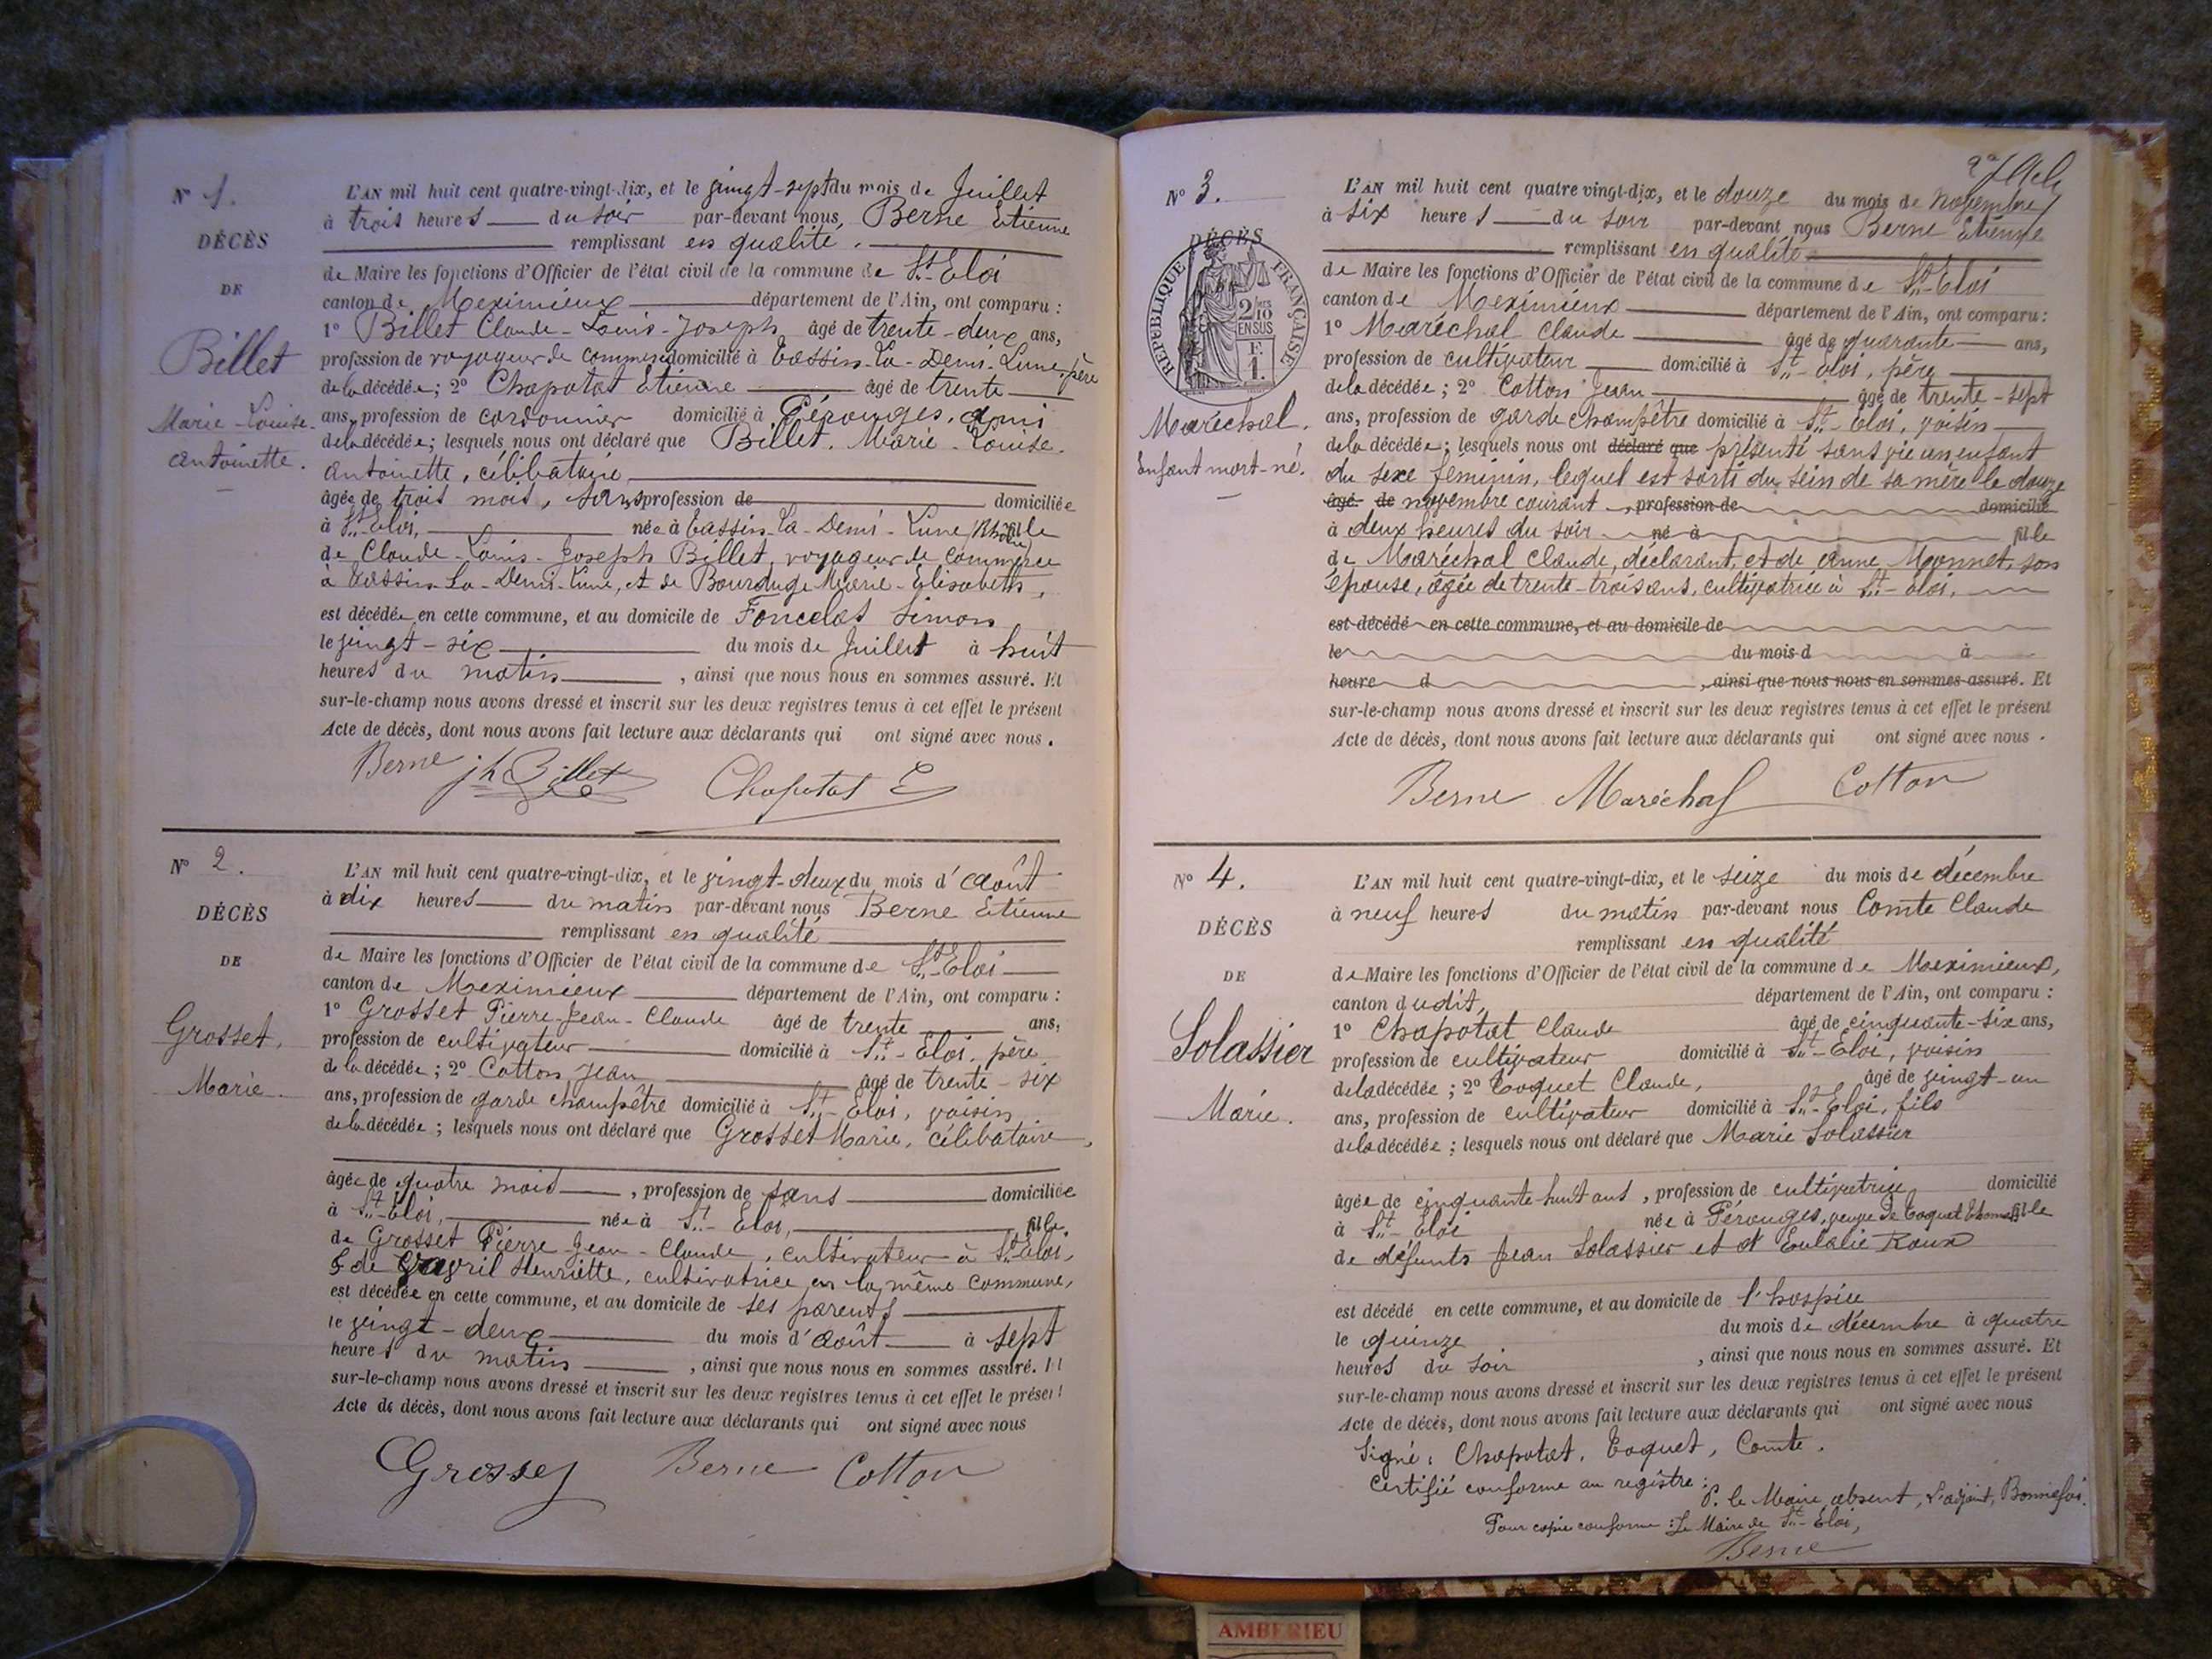 N° 1.
DÉCÈS
DE
Billet
Marie-Louise-
Antoinette.
L'AN mil huit cent quatre-vingt-dix, et le vingt-sept du mois de Juillet
à trois heures du soir par-devant nous, Berne Etienne
remplissant en qualité.
de Maire les fonctions d'Officier de l'état civil de la commune de St-Eloi
canton de Meximieux département de l'Ain, ont comparu :
1° Billet Claude-Louis-Joseph âgé de trente-deux ans,
profession de voyageur de commerce domicilié à Tassin-la-Demi-Lune, père
de la décédée ; 2° Chapotat Etienne âgé de trente
ans, profession de cordonnier domicilié à Pérouges, ami
de la décédée ; lesquels nous ont déclaré que Billet, Marie-Louise-
Antoinette, célibataire
âgée de trois mois, sans profession de domiciliée
à St-Eloi, née à Tassin-la-Demi-Lune (Rhône) fille
de Claude-Louis-Joseph Billet, voyageur de commerce
à Tassin-la-Demi-Lune, et de Bourduge Marie-Elisabeth,
est décédée en cette commune, et au domicile de Foncelas Simon
le vingt-six du mois de Juillet à huit
heures du matin, ainsi que nous nous en sommes assuré. Et
sur-le-champ nous avons dressé et inscrit sur les deux registres tenus à cet effet le présent
Acte de décès, dont nous avons fait lecture aux déclarants qui ont signé avec nous.
Berne jh Billet Chapotat E
N° 2.
DÉCÈS
DE
Grosset,
Marie.
L'AN mil huit cent quatre-vingt-dix, et le vingt-deux du mois d'août
à dix heures du matin par-devant nous Berne Etienne
remplissant en qualité
de Maire les fonctions d'Officier de l'état civil de la commune de St-Eloi
canton de Meximieux département de l'Ain, ont comparu :
1° Grosset Pierre-Jean-Claude âgé de trente ans,
profession de cultivateur domicilié à St-Eloi, père
de la décédée ; 2° Cotton Jean âgé de trente-six
ans, profession de garde champêtre domicilié à St-Eloi, voisin
de la décédée ; lesquels nous ont déclaré que Grosset Marie, célibataire,
âgée de quatre mois, profession de sans domiciliée
à St-Eloi, née à St-Eloi, fille
de Grosset Pierre-Jean-Claude, cultivateur à St-Eloi,
& de Henriette, cultivatrice en la même commune,
est décédée en cette commune, et au domicile de ses parents
le vingt-deux du mois d'août à sept
heures du matin, ainsi que nous nous en sommes assuré. Et
sur-le-champ nous avons dressé et inscrit sur les deux registres tenus à cet effet le présent
Acte de décès, dont nous avons fait lecture aux déclarants qui ont signé avec nous
Grosset Berne Cotton
N° 3.
DÉCÈS
RÉPUBLIQUE FRANÇAISE
2/10 EN SUS
F.
1.
Maréchal.
Enfant mort-né.
L'AN mil huit cent quatre-vingt-dix, et le douze du mois de novembre
à six heures du soir par-devant nous Berne Etienne
remplissant en qualité
de Maire les fonctions d'Officier de l'état civil de la commune de St-Eloi
canton de Meximieux département de l'Ain, ont comparu :
1° Maréchal Claude âgé de quarante ans,
profession de cultivateur domicilié à St-Eloi, père
de la décédée ; 2° Cotton Jean âgé de trente-sept
ans, profession de garde champêtre domicilié à St-Eloi, voisin
de la décédée ; lesquels nous ont déclaré que présenté sans vie un enfant
du sexe féminin, lequel est sorti du sein de sa mère le douze
âgé de novembre courant, profession de domicilié
à deux heures du soir né à fille
de Maréchal Claude, déclarant, et de Anne Monnet, son
épouse, âgée de trente-trois ans, cultivatrice à St-Eloi,
est décédé en cette commune, et au domicile de
le du mois d à
heure d , ainsi que nous nous en sommes assuré. Et
sur-le-champ nous avons dressé et inscrit sur les deux registres tenus à cet effet le présent
Acte de décès, dont nous avons fait lecture aux déclarants qui ont signé avec nous.
Berne Maréchal Cotton
N° 4.
DÉCÈS
DE
Solassier
Marie.
L'AN mil huit cent quatre-vingt-dix, et le seize du mois de décembre
à neuf heures du matin par-devant nous Comte Claude
remplissant en qualité
de Maire les fonctions d'Officier de l'état civil de la commune de Meximieux,
canton dudit, département de l'Ain, ont comparu :
1° Chapotat Claude âgé de cinquante-six ans,
profession de cultivateur domicilié à St-Eloi, voisin
de la décédée ; 2° Toquet Claude, âgé de vingt-un
ans, profession de cultivateur domicilié à St-Eloi, fils
de la décédée ; lesquels nous ont déclaré que Marie Solassier
âgée de cinquante huit ans, profession de cultivatrice domicilié
à St-Eloi née à Pérouges, veuve de Toquet Thomas fille
de défunts Jean Solassier et d'Eulalie Roux
est décédé en cette commune, et au domicile de l'hospice
le quinze du mois de décembre à quatre
heures du soir, ainsi que nous nous en sommes assuré. Et
sur-le-champ nous avons dressé et inscrit sur les deux registres tenus à cet effet le présent
Acte de décès, dont nous avons fait lecture aux déclarants qui ont signé avec nous
Signé : Chapotat, Toquet, Comte.
Certifié conforme au registre :
P. le Maire absent, l'adjoint, Bonnefoi.
Pour copie conforme : Le Maire de St-Eloi,
Berne
AMBERIEU